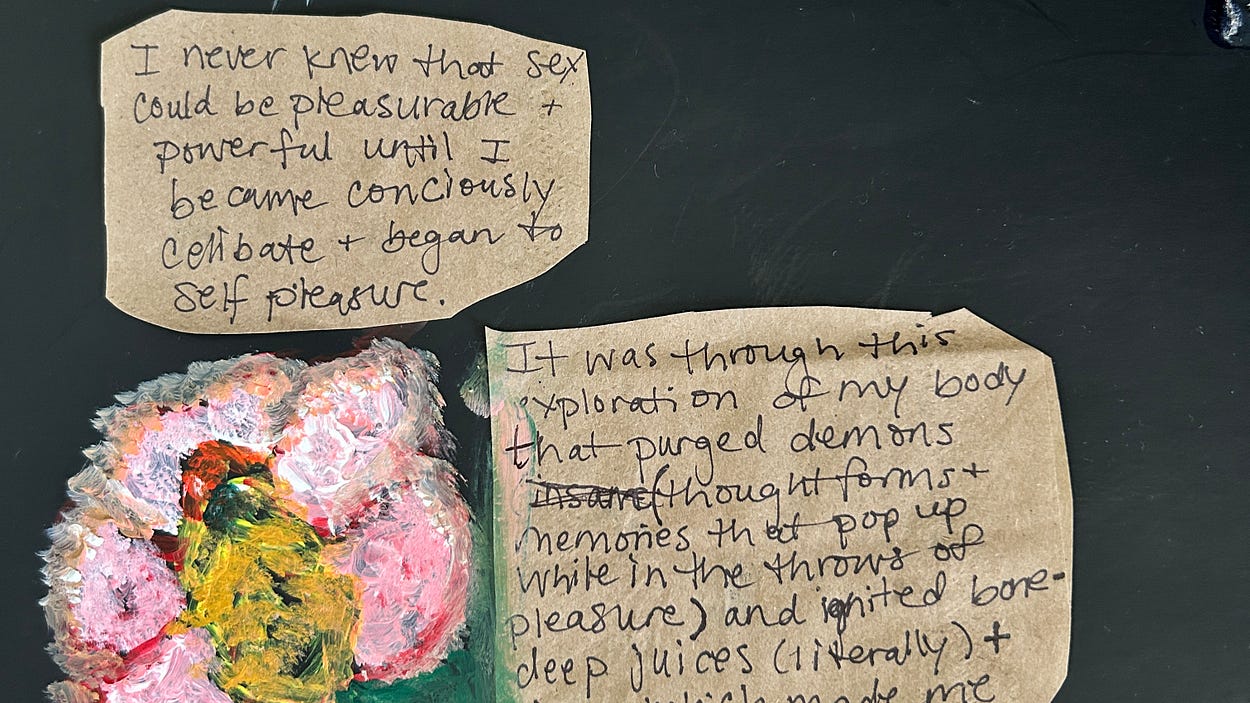 I never knew that sex
could be pleasurable +
powerful until I
became conciously
celibate + began to
self pleasure.
It was through this
exploration of my body
that purged demons
insane (thoughtforms +
memories that pop up
while in the throws of
pleasure) and ignited bone-
deep juices (literally) +
which made me